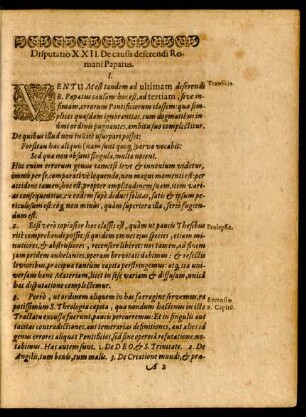 Disputatio XXII. De causis deserendi Ro-
mani Papatus.
I.
VENTUM est tandem ad ultimam deserendi
R. Papatus causam: hoc est, ad tertiam, sive in-
fimam, errorum Pontificiorum classem: quo sim-
plices quasdam ignorantias, cum dogmatibus in-
fimi ordinis pugnantes, ambitu suo complectitur.
De quibus illud non iniitè usurpari posset:
Forsitan hac aliquis (nam sunt quoq;) parva vocabit:
Sed qua non obsunt singula, multa nocent.
Hoc enim errorum genus tametsi leve & innoxium videtur,
immò per se, comparatéve loquendo, non magni momenti est: per
accidens tamen, hoc est, propter amplitudinem suam, item varias
consequentias, ex eodem sæpè deduci solitas, satis & ipsum pe-
riculosum est: eóq; non minùs, quàm superiora illa, seriò fugien-
dum est.
Etsi verò copiosior hac classis est, quàm ut paucis Thesibus
ritè comprehendi possit, si quidem omnes ejus species, etiam mi-
nutiores, & abstrusiores, recensere liberet: nos tamen, ad finem
jam pridem anhelantes, operam brevitati dabimus: & rejectis
levioribus, præcipua tantùm capita perstringemus: atq; ita uni-
versam hanc Materiam, licet in sese variam & diffusam, unicâ
hac disputatione complectemur.
3. Porrò, ut ordinem aliquem in his sarcogine servemus, ea
potissimùm S. Theologiæ capita, quæ nondum hactenus in illo
Tractatu excussa fuerunt, paucis percurremus: Et in singulis aut
tacitas contradictiones, aut temerarias definitiones, aut alios id
genus errores aliquot Pontificios, sed sine operosa refutatione no-
tabimus. Hac autem sunt. 1. De DEO, & S. Trinitate. 2. De
Angelis, tum bonis, tum malis. 3. De Creatione mundi, & præ-
A 2
Transitio.
Prolepsis.